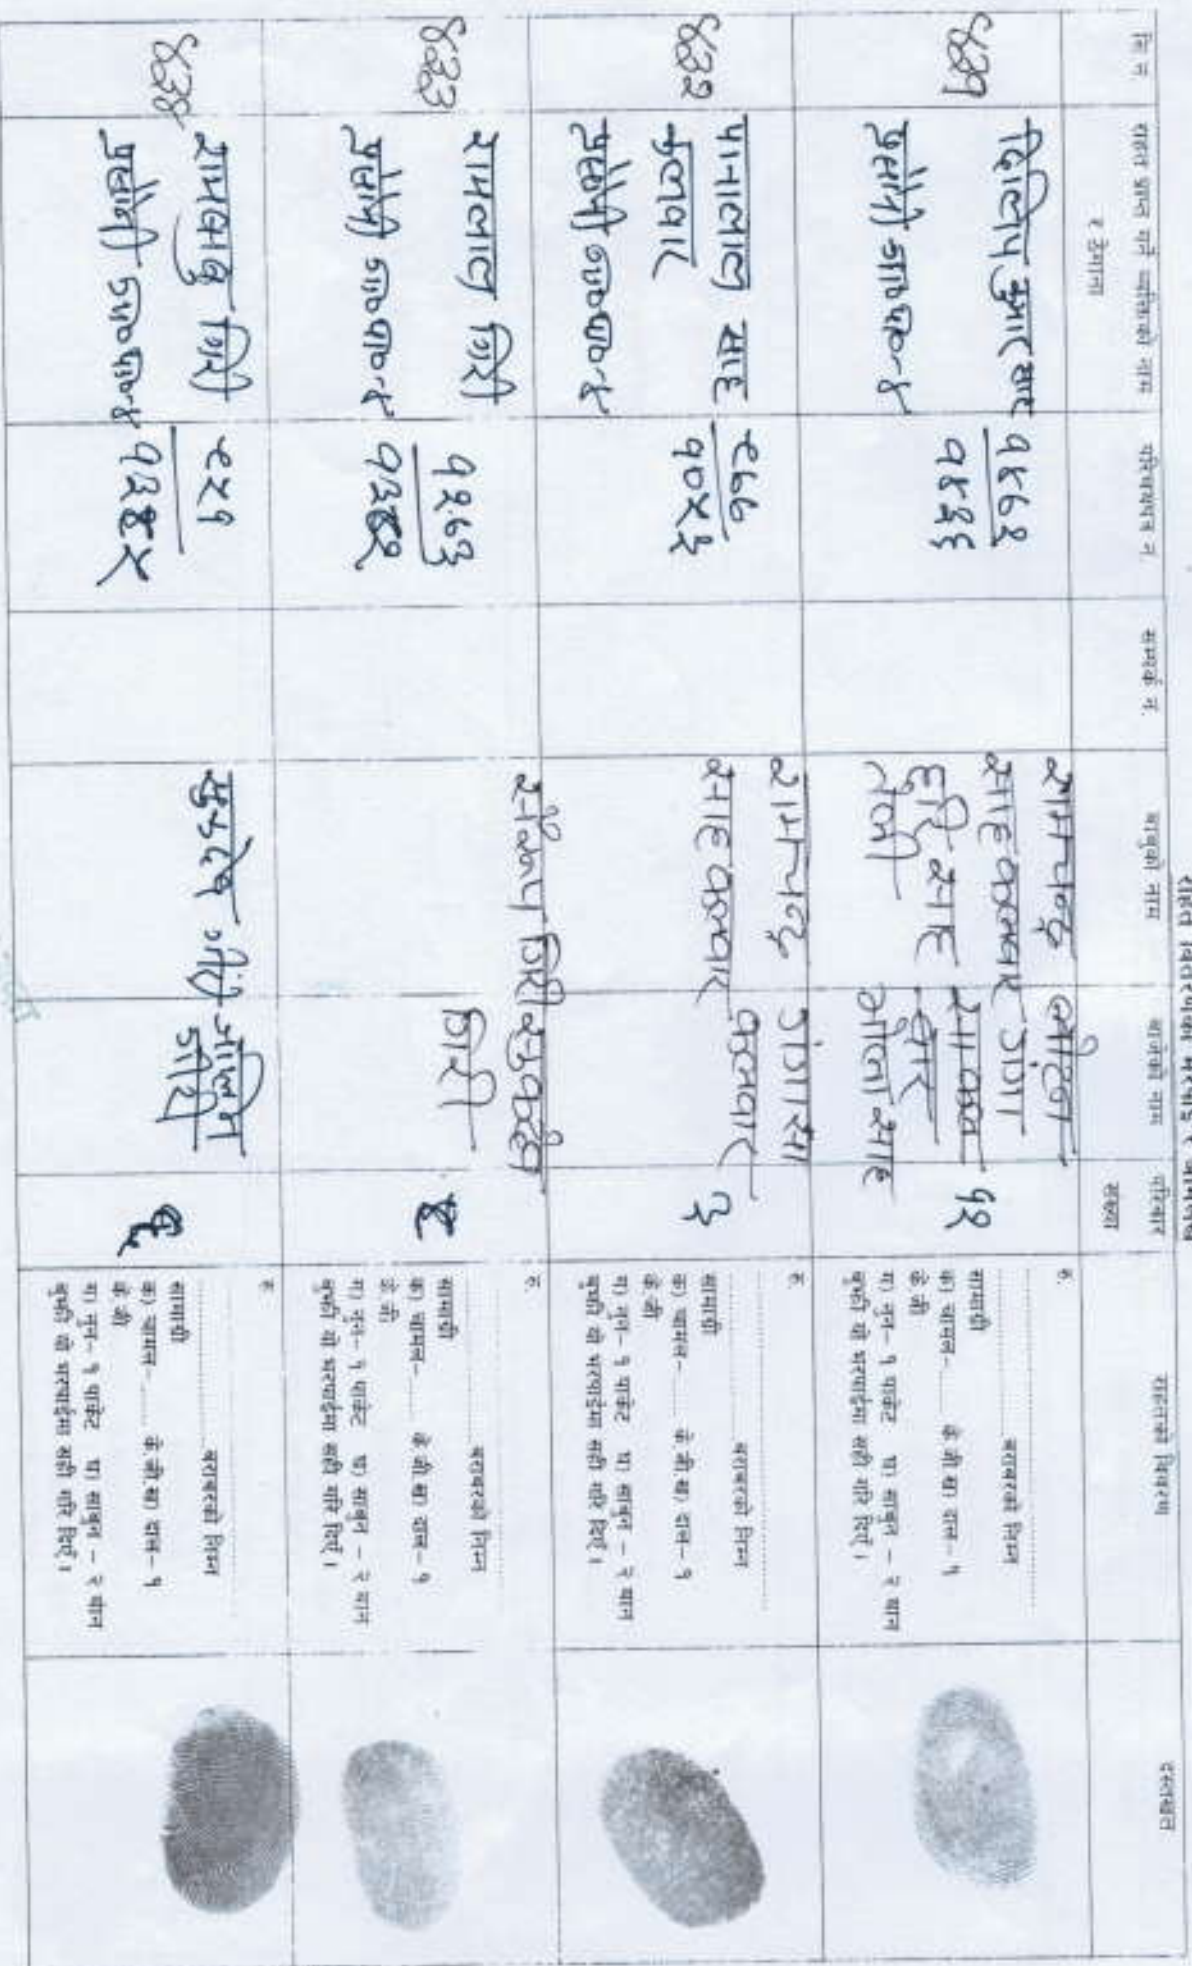 राहत वितरणको भरपाई र अभिलेख
सि नं
राहत प्राप्त गर्ने व्यक्तिको नाम
र ठेगाना
परिचयपत्र नं.
सम्पर्क नं.
बाबुको नाम
बाजेको नाम
परिवार
संख्या
राहतको विवरण
दस्तखत
४३१
दिलिप कुमार साह
प्रसौनी गा०पा०-४
१४७१
१४३६
रामचन्द्र
साह कलवार
हरि साह
तेली
गंगा
साह
१२
रु.
बराबरको निम्न
सामाग्री
क) चामल-...... के.जी ख) दाल- १
के.जी
ग) नुन- १ पाकेट घ) साबुन - २ थान
बुझी यो भरपाईमा सही गरि दिएँ ।
४३२
पानालाल साह
कलवार
प्रसौनी गा०पा०-४
९७७
१०५३
रामचन्द्र
साह कलवार
गंगा सा
कलवार
३
रु.
बराबरको निम्न
सामाग्री
क) चामल-...... के.जी ख) दाल- १
के.जी
ग) नुन- १ पाकेट घ) साबुन - २ थान
बुझी यो भरपाईमा सही गरि दिएँ ।
४३३
रामलाल गिरी
प्रसौनी गा०पा०-४
१२७३
गिरी
गिरी
४
रु.
बराबरको निम्न
सामाग्री
क) चामल-...... के.जी ख) दाल- १
के.जी
ग) नुन- १ पाकेट घ) साबुन - २ थान
बुझी यो भरपाईमा सही गरि दिएँ ।
४३४
रामबाबु गिरी
प्रसौनी गा०पा०-४
रु.
बराबरको निम्न
सामाग्री
क) चामल-...... के.जी ख) दाल- १
के.जी
ग) नुन- १ पाकेट घ) साबुन - २ थान
बुझी यो भरपाईमा सही गरि दिएँ ।